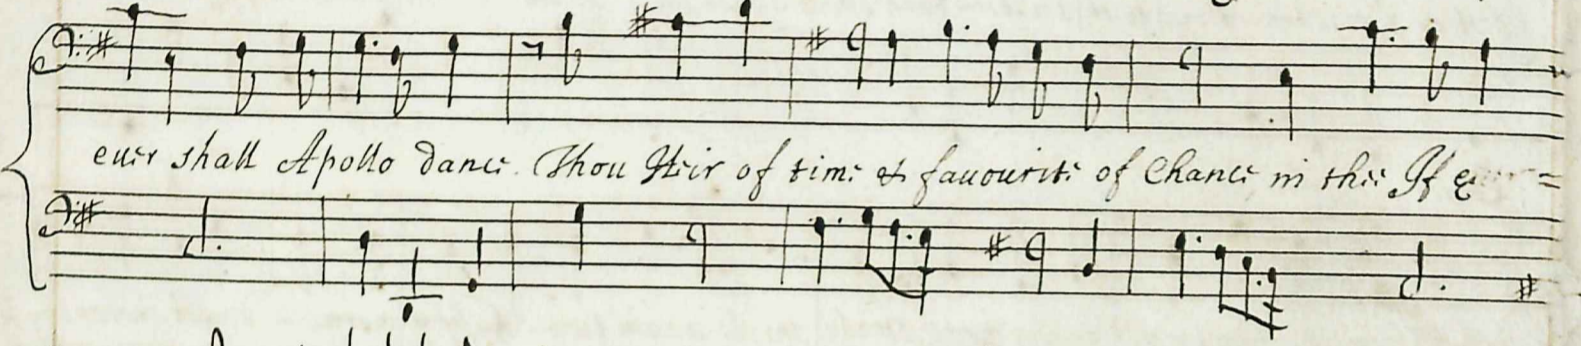 euer shall Apollo dance. Thou Heir of time & fauourite of Chance in thee If